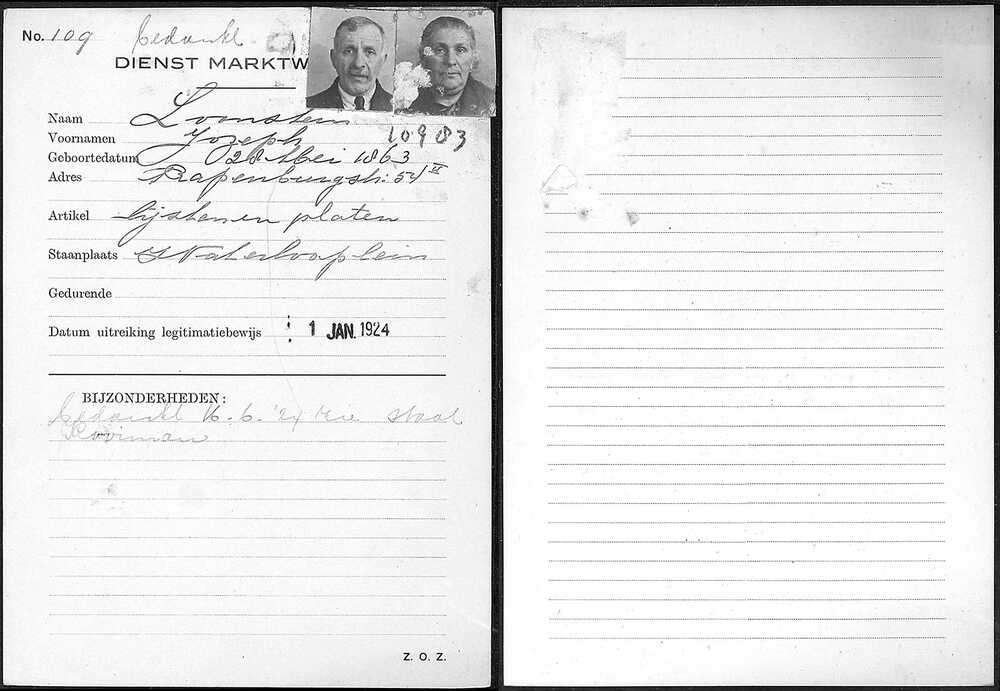 No. 109 bedankt
DIENST MARKTW
Naam Loonstein
Voornamen Joseph 10983
Geboortedatum 28 Mei 1863
Adres Rapenburgstr. 54 II
Artikel lijsten en platen
Staanplaats Waterlooplein
Gedurende
Datum uitreiking legitimatiebewijs 1 JAN. 1924
BIJZONDERHEDEN:
bedankt 16.6.'24 zie staat
Kooiman
Z. O. Z.